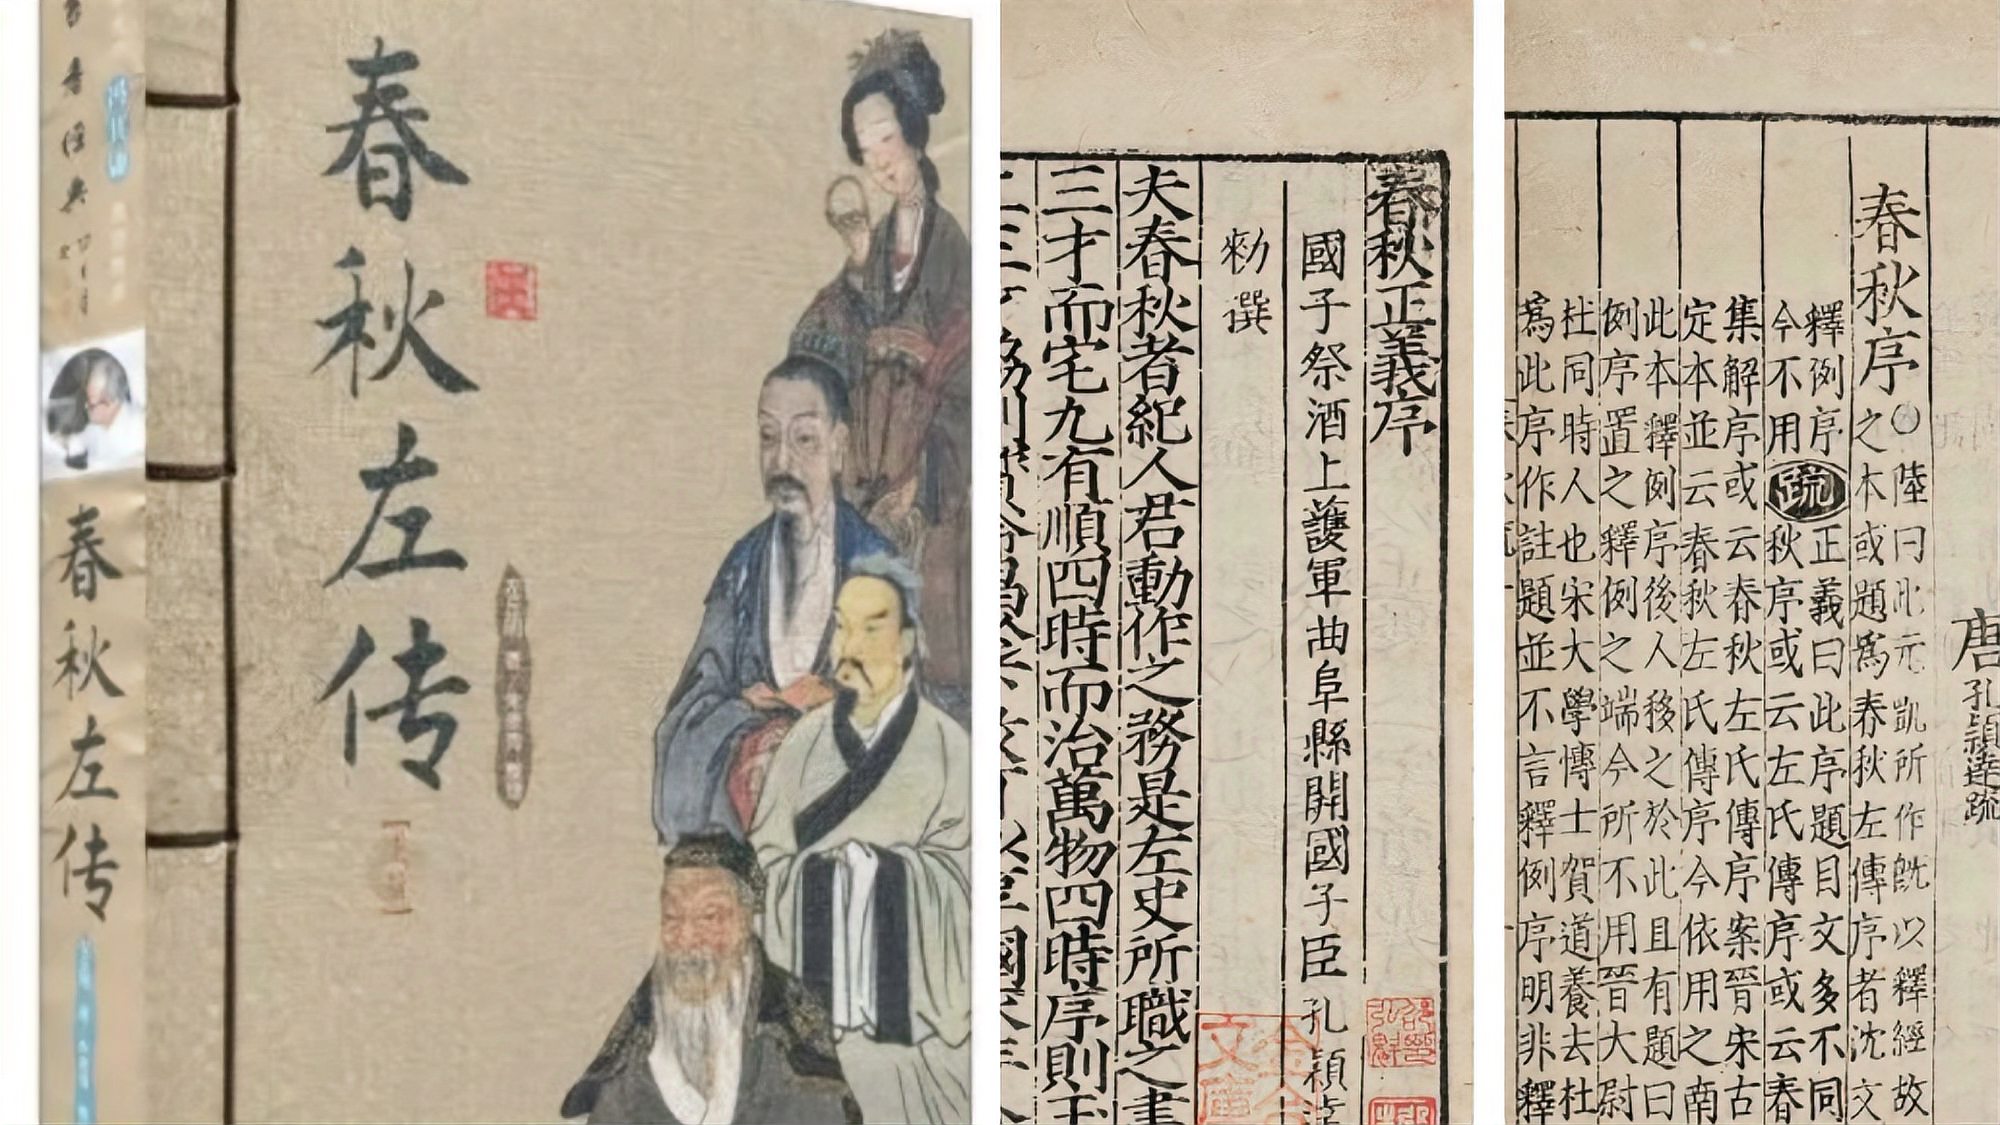 春秋左传
春秋左传
春秋正義序
國子祭酒上護軍曲阜縣開國子臣孔穎達
勑撰
夫春秋者紀人君動作之務是左史所職之書
三才而宅九有順四時而治萬物四時序則玉
唐孔穎達疏
春秋序○陸曰此元凱所作旣以釋經故
之本或題爲春秋左傳序者沈文
釋例序疏正義曰此序題目文多不同
今不用秋序或云左氏傳序或云春
集解序或云春秋左氏傳序案晉宋古
定本並云春秋左氏傳序今依用之南
此本釋例序後人移之於此且有題曰
例序置之釋例之端今所不用晉大尉
杜同時人也宋大學愽士賀道養去杜
爲此序作註題並不言釋例序明非釋